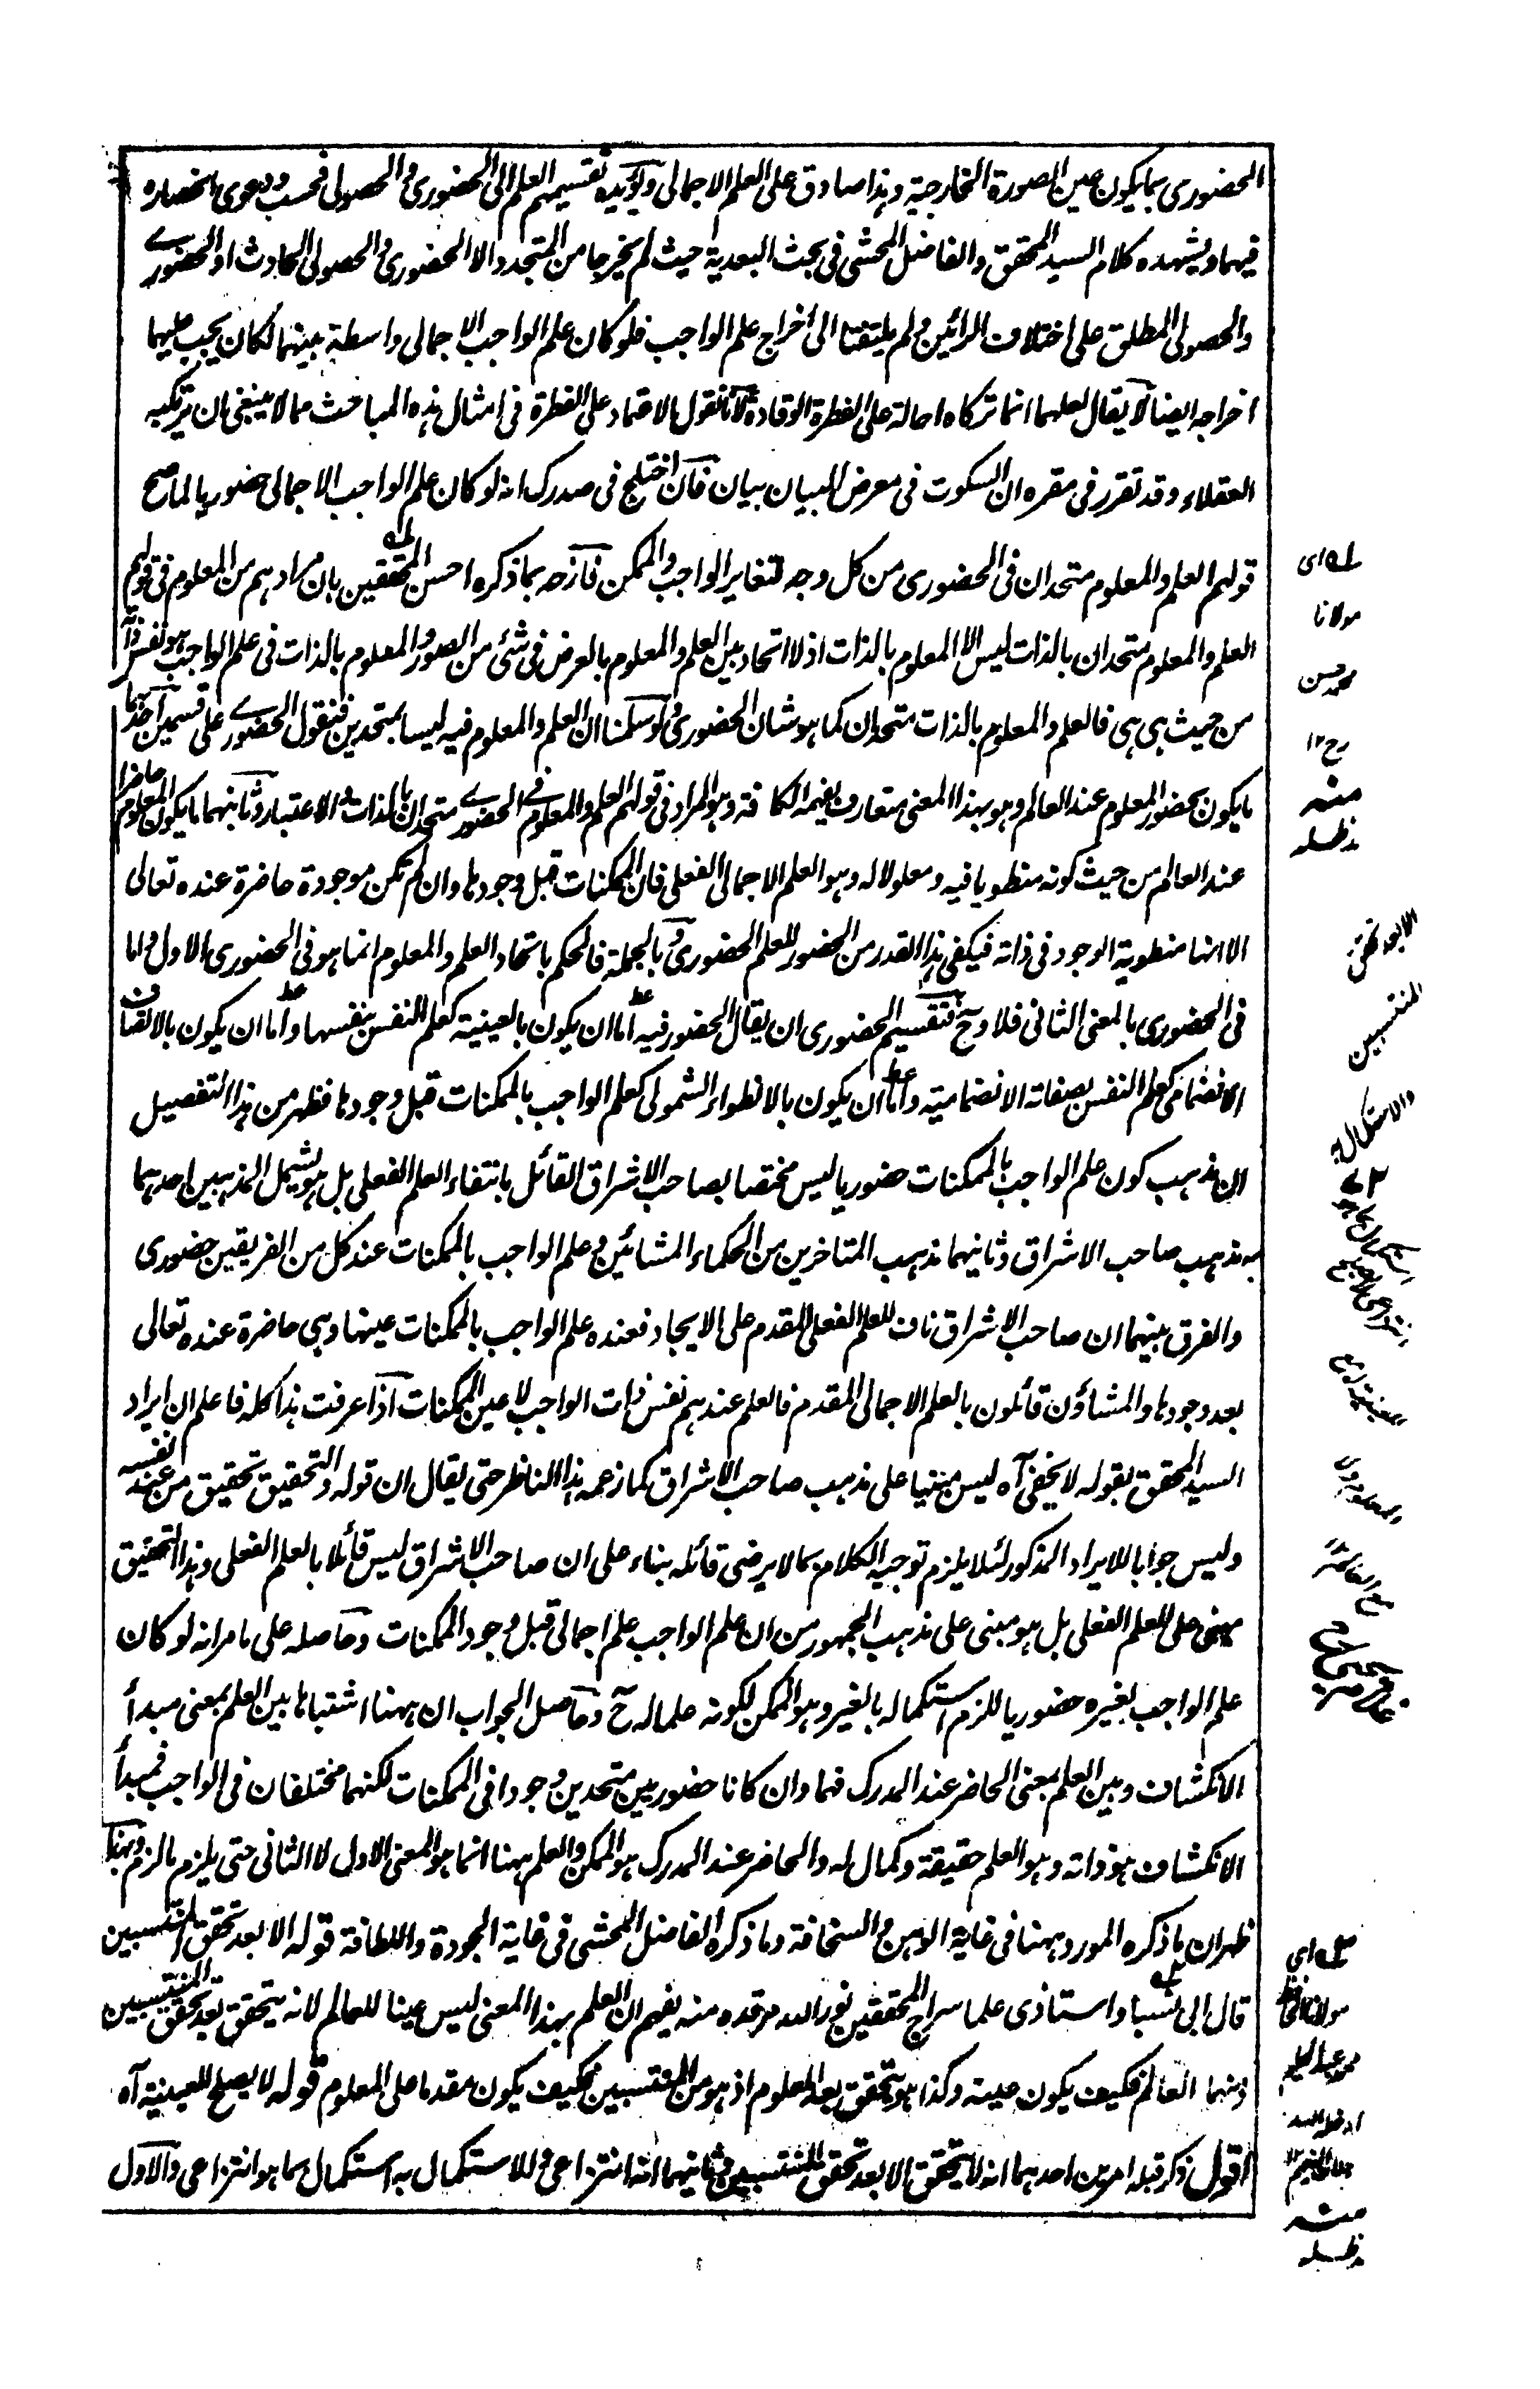 الحضوری بما یکون عین الصورة الخارجیة وہذا صادق علی العلم الاجمالی ویؤیدہ تقسیمہم العلم الی الحضوری والحصولی فحسب ودعوی انحصارہ
فیہما ویشہدہ کلام السید المحقق والفاضل المحشی فی بحث البعدیة حیث لم یخرجا من المتجدد الا الحضوری والحصولی الحادث او الحضورے
والحصولی المطلق علی اختلاف الرائین ولم یلتفتا الی اخراج علم الواجب فلو کان علم الواجب الاجمالی واسطة بینہما لکان یجب علیہما
اخراجہ ایضا لا یقال لعلہما انما ترکاہ احالة علی الفطرة الوقادة لانا نقول الاعتماد علی الفطرة فی امثال ہذہ المباحث مما لا ینبغی ان یرتکبہ
العقلاء وقد تقرر فی مقرہ ان السکوت فی معرض البیان بیان فان اختلج فی صدرک انہ لو کان علم الواجب الاجمالی حضوریا لما صح
قولہم العلم والمعلوم متحدان فی الحضوری من کل وجہ لتغایر الواجب والممکن فازحہ بما ذکرہ احسن المحققین بان مرادہم من المعلوم فی قولہم
العلم والمعلوم متحدان بالذات لیس الا المعلوم بالذات اذ لا اتحاد بین العلم والمعلوم بالعرض فی شئ من الصور والمعلوم بالذات فی علم الواجب ہو نفس ذاتہ
من حیث ہی ہی فالعلم والمعلوم بالذات متحدان کما ہو شان الحضوری ولو سلمنا ان العلم والمعلوم فیہ لیسا بمتحدین فنقول الحضورے علی قسمین احدہما
ما یکون بحضور المعلوم عند العالم وہو بہذا المعنی متعارف یفہمہ الکافة وہو المراد فی قولہم العلم والمعلوم فی الحضورے متحدان بالذات والاعتبار وثانیہما ما یکون المعلوم حاضرا
عند العالم من حیث کونہ منطویا فیہ ومعلولا لہ وہو العلم الاجمالی الفعلی فان الممکنات قبل وجودہا وان لم تکن موجودة حاضرة عندہ تعالی
الا انہا منطویة الوجود فی ذاتہ فیکفی ہذا القدر من الحضور للعلم الحضوری وبالجملة فالحکم باتحاد العلم والمعلوم انما ہو فی الحضوری الاول واما
فی الحضوری بالمعنی الثانی فلا وح فتقسیم الحضوری ان یقال الحضور فیہ اما ان یکون بالعینیة کعلم النفس بنفسہا واما ان یکون بالاتصاف
الانضمامی کعلم النفس بصفاتہ الانضمامیة واما ان یکون بالانطواء الشمولی کعلم الواجب بالممکنات قبل وجودہا فظہر من ہذا التفصیل
ان مذہب کون علم الواجب بالممکنات حضوریا لیس مختصا بصاحب الاشراق القائل بانتفاء العلم الفعلی بل ہو یشمل المذہبین احدہما
مذہب صاحب الاشراق وثانیہما مذہب المتاخرین من الحکماء المشائین وعلم الواجب بالممکنات عند کل من الفریقین حضوری
والفرق بینہما ان صاحب الاشراق ناف للعلم الفعلی المقدم علی الایجاد فعندہ علم الواجب بالممکنات عینہا وہی حاضرة عندہ تعالی
بعد وجودہا والمشاؤن قائلون بالعلم الاجمالی المقدم فالعلم عندہم نفس ذات الواجب لا عین الممکنات اذا عرفت ہذا کلہ فاعلم ان ایراد
السید المحقق بقولہ لا یخفی آہ لیس مبنیا علی مذہب صاحب الاشراق کما زعمہ ہذا الناظر حتی یقال ان قولہ والتحقیق تحقیق من عند نفسہ
ولیس جوابا للایراد المذکور لئلا یلزم توجیہ الکلام بما لا یرضی قائلہ بناء علی ان صاحب الاشراق لیس قائلا بالعلم الفعلی وہذا التحقیق
مبنی علی العلم الفعلی بل ہو مبنی علی مذہب الجمہور من ان علم الواجب علم اجمالی قبل وجود الممکنات وحاصلہ علی ما مر انہ لو کان
علم الواجب لغیرہ حضوریا للزم استکمالہ بالغیر وہو الممکن لکونہ علما لہ ح وحاصل الجواب ان ہہنا اشتباہا بین العلم بمعنی مبدأ
الانکشاف وبین العلم بمعنی الحاضر عند المدرک فہما وان کانا حضوریین متحدین وجودا فی الممکنات لکنہما مختلفان فی الواجب فمبدأ
الانکشاف ہو ذاتہ وہو العلم حقیقة وکمال لہ والحاضر عند المدرک ہو الممکن والعلم ہہنا انما ہو المعنی الاول لا الثانی حتی یلزم ما لزم وبہذا
ظہر ان ما ذکرہ المورد ہہنا فی غایة الوہن والسخافة وما ذکرہ الفاضل المحشی فی غایة الجودة واللطافة قولہ الا بعد تحقق المنتسبین
قال ابی نسبا واستاذی علما سراج المحققین نور اللہ مرقدہ منہ یفہم ان العلم بہذا المعنی لیس عینا للعالم لانہ یتحقق بعد تحقق المنتسبین
ومنہما العالم فکیف یکون عینہ وکذا ہو یتحقق بعد المعلوم اذ ہو من المنتسبین فکیف یکون مقدما علی المعلوم قولہ لا یصلح للعینیة آہ
اقول ذکر قبلہ امرین احدہما انہ لا یتحقق الا بعد تحقق المنتسبین وثانیہما انہ انتزاعی وللاستکمال بہ استکمال بما ہو انتزاعی والاول
لہ ای
مولانا
محمد حسن
رح ۱۲
منہ
مدظلہ
الا بعد تحقق
المنتسبین
والاستکمال بہ
ای
مولانا الحافظ
محمد عبد الحلیم
ادخلہ اللہ
منہ
مدظلہ